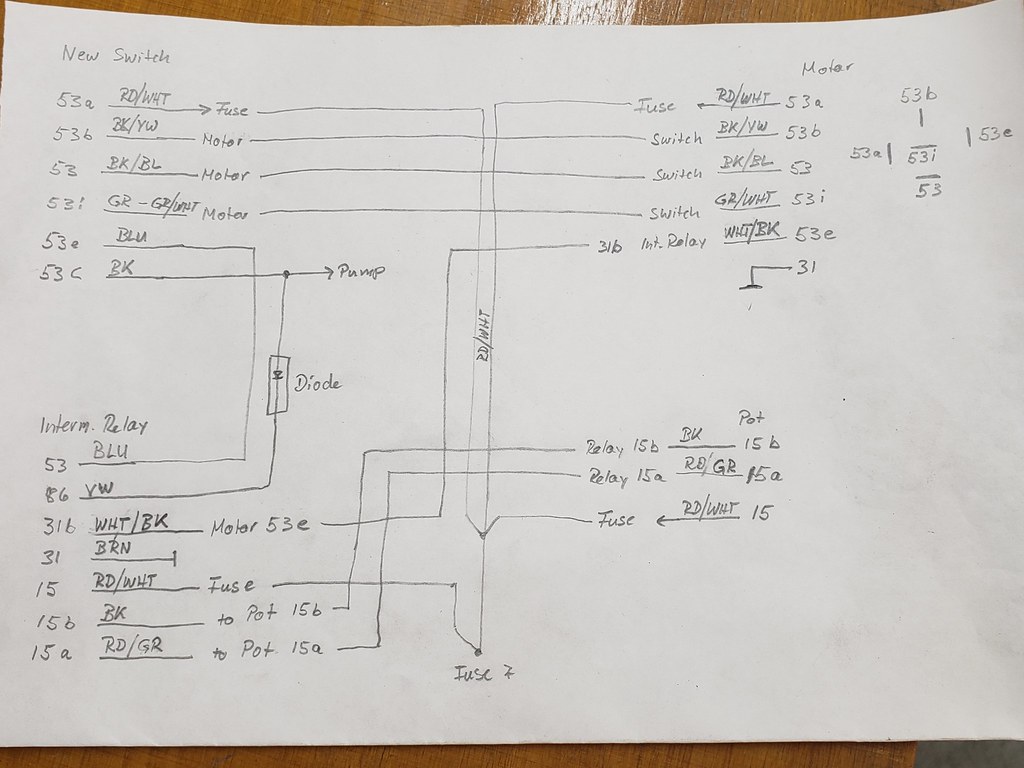 New Switch
53a RD/WHT Fuse
53b BK/YW Motor
53 BK/BL Motor
53i GR-GR/WHT Motor
53e BLU
53c BK Pump
Diode
RD/WHT
Motor
Fuse RD/WHT 53a
Switch BK/YW 53b
Switch BK/BL 53
Switch GR/WHT 53i
31b Int. Relay WHT/BK 53e
31
53b
53a 53i 53e
53
Interm. Relay
53 BLU
86 YW
31b WHT/BK Motor 53e
31 BRN
15 RD/WHT Fuse
15b BK to Pot 15b
15a RD/GR to Pot. 15a
Pot
Relay 15b BK 15b
Relay 15a RD/GR 15a
Fuse RD/WHT 15
Fuse 7